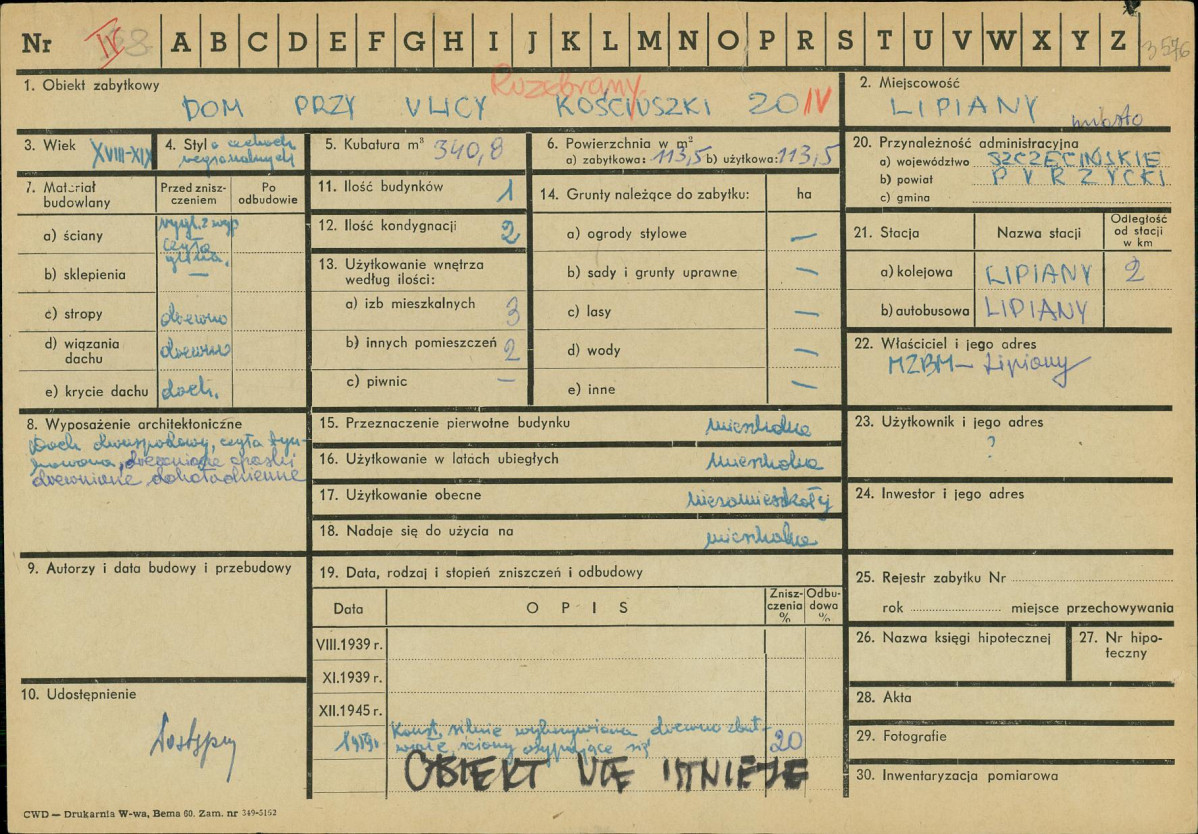 Nr IV A B C D E F G H I J K L M N O P R S T U V W X Y Z 3576
Rozebrany
1. Obiekt zabytkowy
DOM PRZY ULICY KOŚCIUSZKI 20 IV
2. Miejscowość
LIPIANY
miasto
3. Wiek XVIII-XIX
4. Styl o cechach
regionalnych
5. Kubatura m³ 340,8
6. Powierzchnia w m²
a) zabytkowa: 113,5 b) użytkowa: 113,5
20. Przynależność administracyjna
a) województwo SZCZECIŃSKIE
b) powiat PYRZYCKI
c) gmina
7. Materiał budowlany
Przed zniszczeniem
Po odbudowie
a) ściany
czyta
glina.
b) sklepienia —
c) stropy drewno
d) wiązania dachu drewno
e) krycie dachu dach.
11. Ilość budynków 1
12. Ilość kondygnacji 2
13. Użytkowanie wnętrza
według ilości:
a) izb mieszkalnych 3
b) innych pomieszczeń 2
c) piwnic —
14. Grunty należące do zabytku: ha
a) ogrody stylowe —
b) sady i grunty uprawne —
c) lasy —
d) wody —
e) inne —
21. Stacja
Nazwa stacji
Odległość od stacji w km
a) kolejowa LIPIANY 2
b) autobusowa LIPIANY
22. Właściciel i jego adres
MZBM — Lipiany
8. Wyposażenie architektoniczne
Dach dwuspadowy,
drewniane
15. Przeznaczenie pierwotne budynku mieszkalne
16. Użytkowanie w latach ubiegłych mieszkalne
17. Użytkowanie obecne niezamieszkały
18. Nadaje się do użycia na mieszkalne
23. Użytkownik i jego adres
?
24. Inwestor i jego adres
9. Autorzy i data budowy i przebudowy
19. Data, rodzaj i stopień zniszczeń i odbudowy
Data
OPIS
Zniszczenia %
Odbudowa %
VIII.1939 r.
XI.1939 r.
XII.1945 r.
Konst. silnie wykrzywiona drewno zbut-
wiałe, ściany osypujące się 20
OBIEKT NIE ISTNIEJE
25. Rejestr zabytku Nr
rok miejsce przechowywania
26. Nazwa księgi hipotecznej
27. Nr hipoteczny
28. Akta
29. Fotografie
30. Inwentaryzacja pomiarowa
10. Udostępnienie
Dostępny
CWD — Drukarnia W-wa, Bema 60. Zam. nr 349-5152